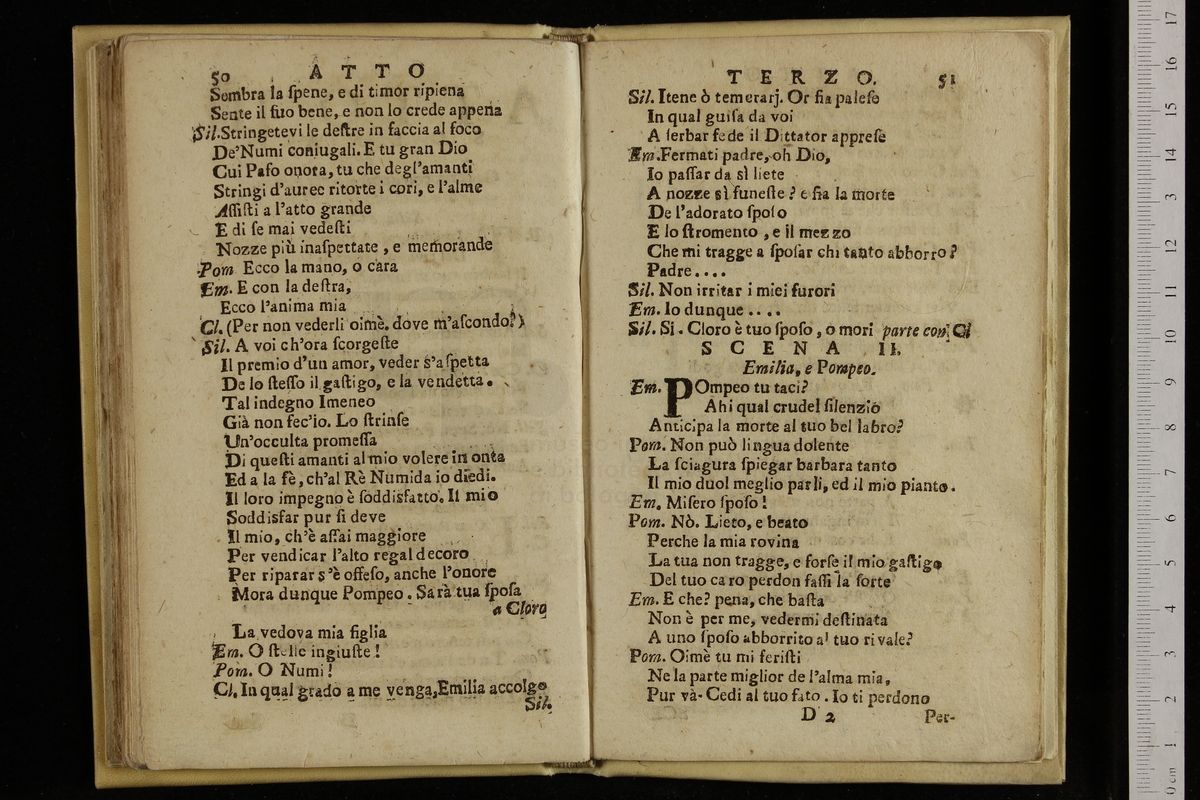 50 ATTO
Sembra la ſpene, e di timor ripiena
Sente il ſuo bene, e non lo crede appena
Sil. Stringetevi le deſtre in faccia al foco
De'Numi coniugali. E tu gran Dio
Cui Pafo onora, tu che degl'amanti
Stringi d'auree ritorte i cori, e l'alme
Aſſiſti a l'atto grande
E di ſe mai vedeſti
Nozze più inaſpettate, e memorande
Pom. Ecco la mano, o cara
Em. E con la deſtra,
Ecco l'anima mia
Cl. (Per non vederli oimè. dove m'aſcondo?)
Sil. A voi ch'ora ſcorgeſte
Il premio d'un amor, veder s'aſpetta
De lo ſteſſo il gaſtigo, e la vendetta.
Tal indegno Imeneo
Già non fec'io. Lo ſtrinſe
Un'occulta promeſſa
Di queſti amanti al mio volere in onta
Ed a la fè, ch'al Rè Numida io diedi.
Il loro impegno è ſoddisfatto. Il mio
Soddisfar pur ſi deve
Il mio, ch'è aſſai maggiore
Per vendicar l'alto regal decoro
Per riparar s'è offeſo, anche l'onore
Mora dunque Pompeo. Sarà tua ſpoſa
a Cloro
La vedova mia figlia
Em. O ſtelle ingiuſte!
Pom. O Numi!
Cl. In qual grado a me venga, Emilia accolgo
Sil.
TERZO. 51
Sil. Itene ò temerarj. Or ſia paleſe
In qual guiſa da voi
A ſerbar fede il Dittator appreſe
Em. Fermati padre, oh Dio,
Io paſſar da sì liete
A nozze sì funeſte? e ſia la morte
De l'adorato ſpoſo
E lo ſtromento, e il mezzo
Che mi tragge a ſpoſar chi tanto abborro?
Padre....
Sil. Non irritar i miei furori
Em. Io dunque....
Sil. Si. Cloro è tuo ſpoſo, o mori parte con Cl
SCENA II.
Emilia, e Pompeo.
Em. POmpeo tu taci?
Ahi qual crudel ſilenzio
Anticipa la morte al tuo bel labro?
Pom. Non può lingua dolente
La ſciagura ſpiegar barbara tanto
Il mio duol meglio parli, ed il mio pianto.
Em. Miſero ſpoſo!
Pom. Nò. Lieto, e beato
Perche la mia rovina
La tua non tragge, e forſe il mio gaſtigo
Del tuo caro perdon faſſi la ſorte
Em. E che? pena, che baſta
Non è per me, vedermi deſtinata
A uno ſpoſo abborrito al tuo rivale?
Pom. Oimè tu mi feriſti
Ne la parte miglior de l'alma mia,
Pur và. Cedi al tuo fato. Io ti perdono
D 2 Per-